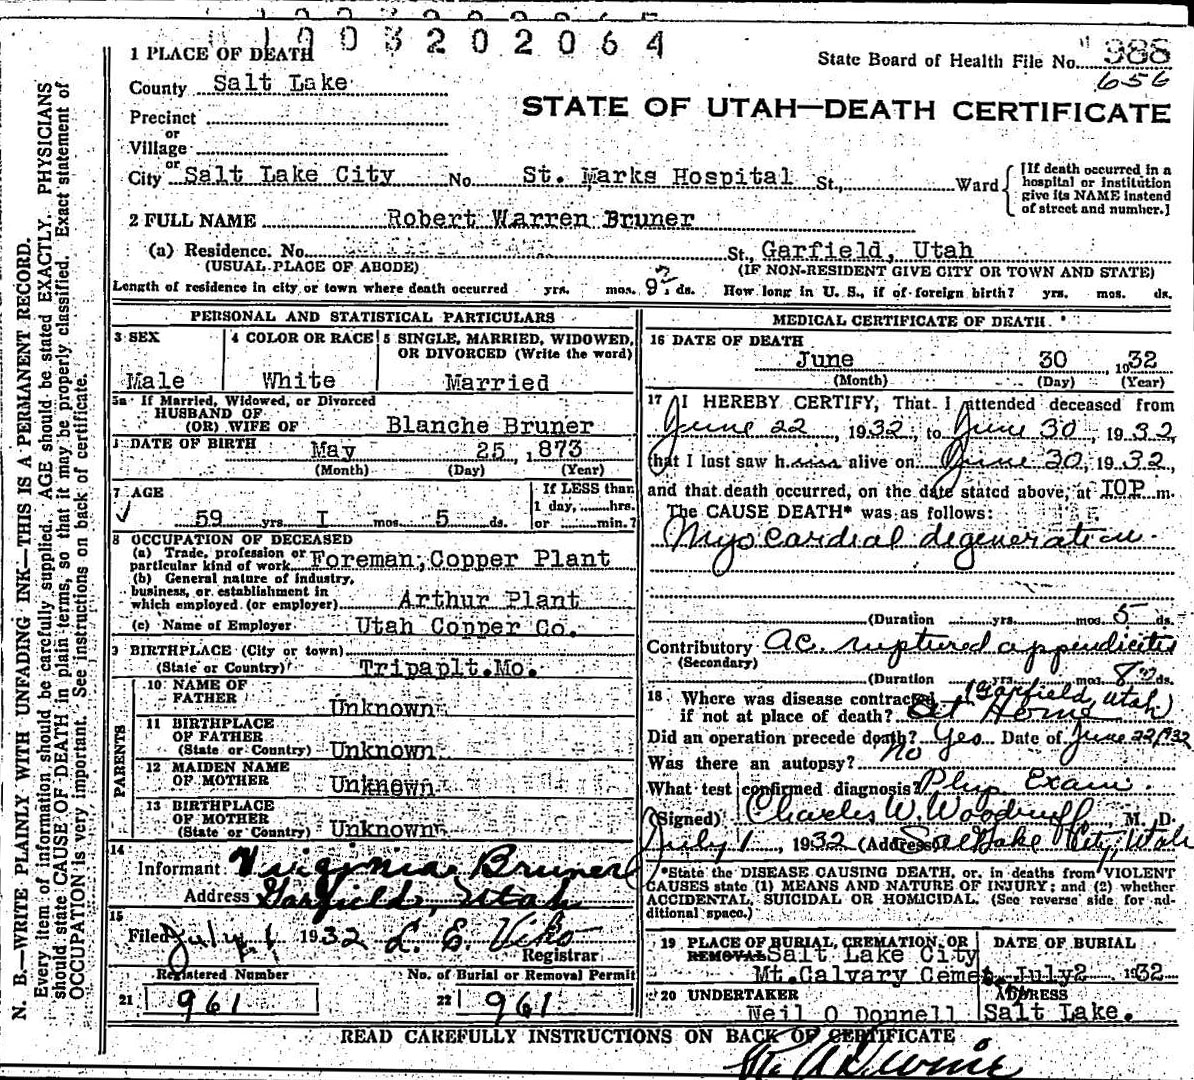 1003202064
1 PLACE OF DEATH
State Board of Health File No. 988
656
County Salt Lake
STATE OF UTAH—DEATH CERTIFICATE
Precinct
or
Village
or
City Salt Lake City No. St. Marks Hospital St., Ward
[If death occurred in a hospital or institution give its NAME instead of street and number.]
2 FULL NAME Robert Warren Bruner
(a) Residence. No. St., Garfield, Utah
(USUAL PLACE OF ABODE) (IF NON-RESIDENT GIVE CITY OR TOWN AND STATE)
Length of residence in city or town where death occurred yrs. mos. 9 ds. How long in U. S., if of foreign birth? yrs. mos. ds.
PERSONAL AND STATISTICAL PARTICULARS
3 SEX 4 COLOR OR RACE 5 SINGLE, MARRIED, WIDOWED, OR DIVORCED (Write the word)
Male White Married
5a If Married, Widowed, or Divorced
HUSBAND OF
(OR) WIFE OF Blanche Bruner
DATE OF BIRTH May 25, 1873
(Month) (Day) (Year)
7 AGE If LESS than
1 day, hrs.
59 yrs. I mos. 5 ds. or min.?
8 OCCUPATION OF DECEASED
(a) Trade, profession or
particular kind of work Foreman, Copper Plant
(b) General nature of industry,
business, or establishment in
which employed (or employer) Arthur Plant
(c) Name of Employer Utah Copper Co.
9 BIRTHPLACE (City or town)
(State or Country) Tripaplt. Mo.
PARENTS
10 NAME OF
FATHER Unknown
11 BIRTHPLACE
OF FATHER
(State or Country) Unknown
12 MAIDEN NAME
OF MOTHER Unknown
13 BIRTHPLACE
OF MOTHER
(State or Country) Unknown
14
Informant Virginia Bruner
Address Garfield, Utah
15
Filed July 1 1932 L. E. Viko
Registrar
Registered Number No. of Burial or Removal Permit
21 961 22 961
MEDICAL CERTIFICATE OF DEATH
16 DATE OF DEATH
June 30, 1932
(Month) (Day) (Year)
17 I HEREBY CERTIFY, That I attended deceased from
June 22, 1932, to June 30, 1932,
that I last saw him alive on June 30, 1932,
and that death occurred, on the date stated above, at IOP m.
The CAUSE DEATH* was as follows:
Myocardial degeneration.
(Duration yrs. mos. 5 ds.
Contributory Ac. ruptured appendicitis
(Secondary)
(Duration yrs. mos. 8 ds.
18 Where was disease contracted Garfield, Utah
if not at place of death? At Home
Did an operation precede death? Yes Date of June 22/1932
Was there an autopsy? No
What test confirmed diagnosis? Phys Exam.
(Signed) Charles W. Woodruff, M. D.
July 1, 1932 (Address) Salt Lake City, Utah
*State the DISEASE CAUSING DEATH, or, in deaths from VIOLENT
CAUSES state (1) MEANS AND NATURE OF INJURY; and (2) whether
ACCIDENTAL, SUICIDAL OR HOMICIDAL. (See reverse side for ad-
ditional space.)
19 PLACE OF BURIAL, CREMATION, OR DATE OF BURIAL
REMOVAL Salt Lake City
Mt. Calvary Cemet. July 2 1932
20 UNDERTAKER ADDRESS
Neil O Donnell Salt Lake.
READ CAREFULLY INSTRUCTIONS ON BACK OF CERTIFICATE
N. B.—WRITE PLAINLY WITH UNFADING INK—THIS IS A PERMANENT RECORD.
Every item of information should be carefully supplied. AGE should be stated EXACTLY. PHYSICIANS
should state CAUSE OF DEATH in plain terms, so that it may be properly classified. Exact statement of
OCCUPATION is very important. See instructions on back of certificate.